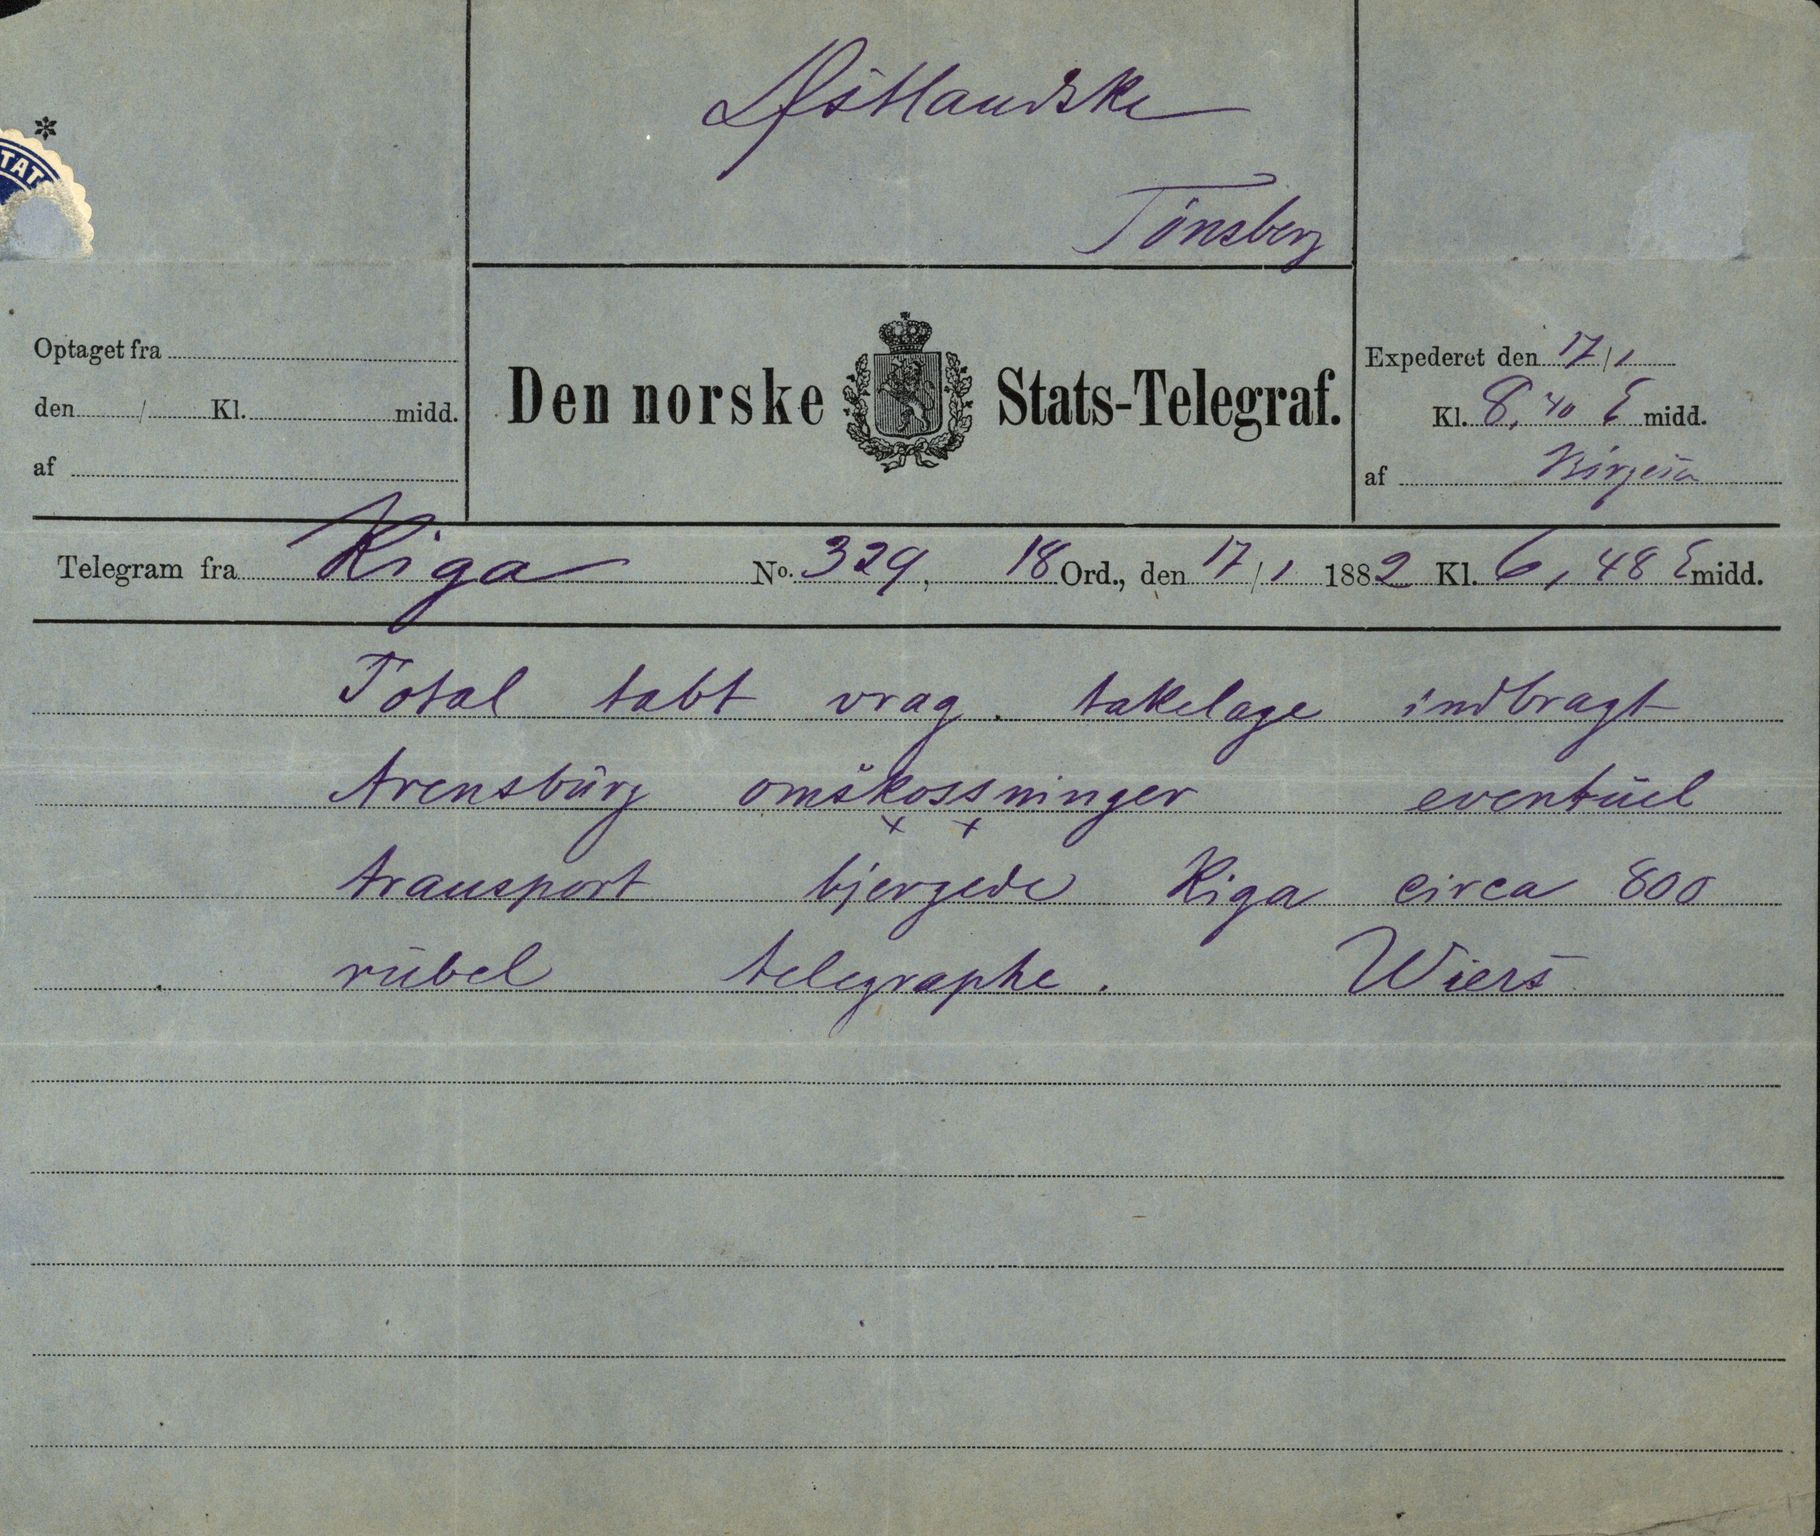 *
TAT
Østlandske
Tönsberg
Optaget fra
den / Kl. midd.
af
Den norske Stats-Telegraf.
Expederet den 17/1
Kl. 8,40 E midd.
af
Telegram fra Riga No. 329, 18 Ord., den 17/1 1882 Kl. 6,48 E midd.
Total tabt vrag. takelage indbragt
Arensbürg omskossninger eventüel
x x
transport bjergede Riga circa 800
rübel telegraphe. Wiers